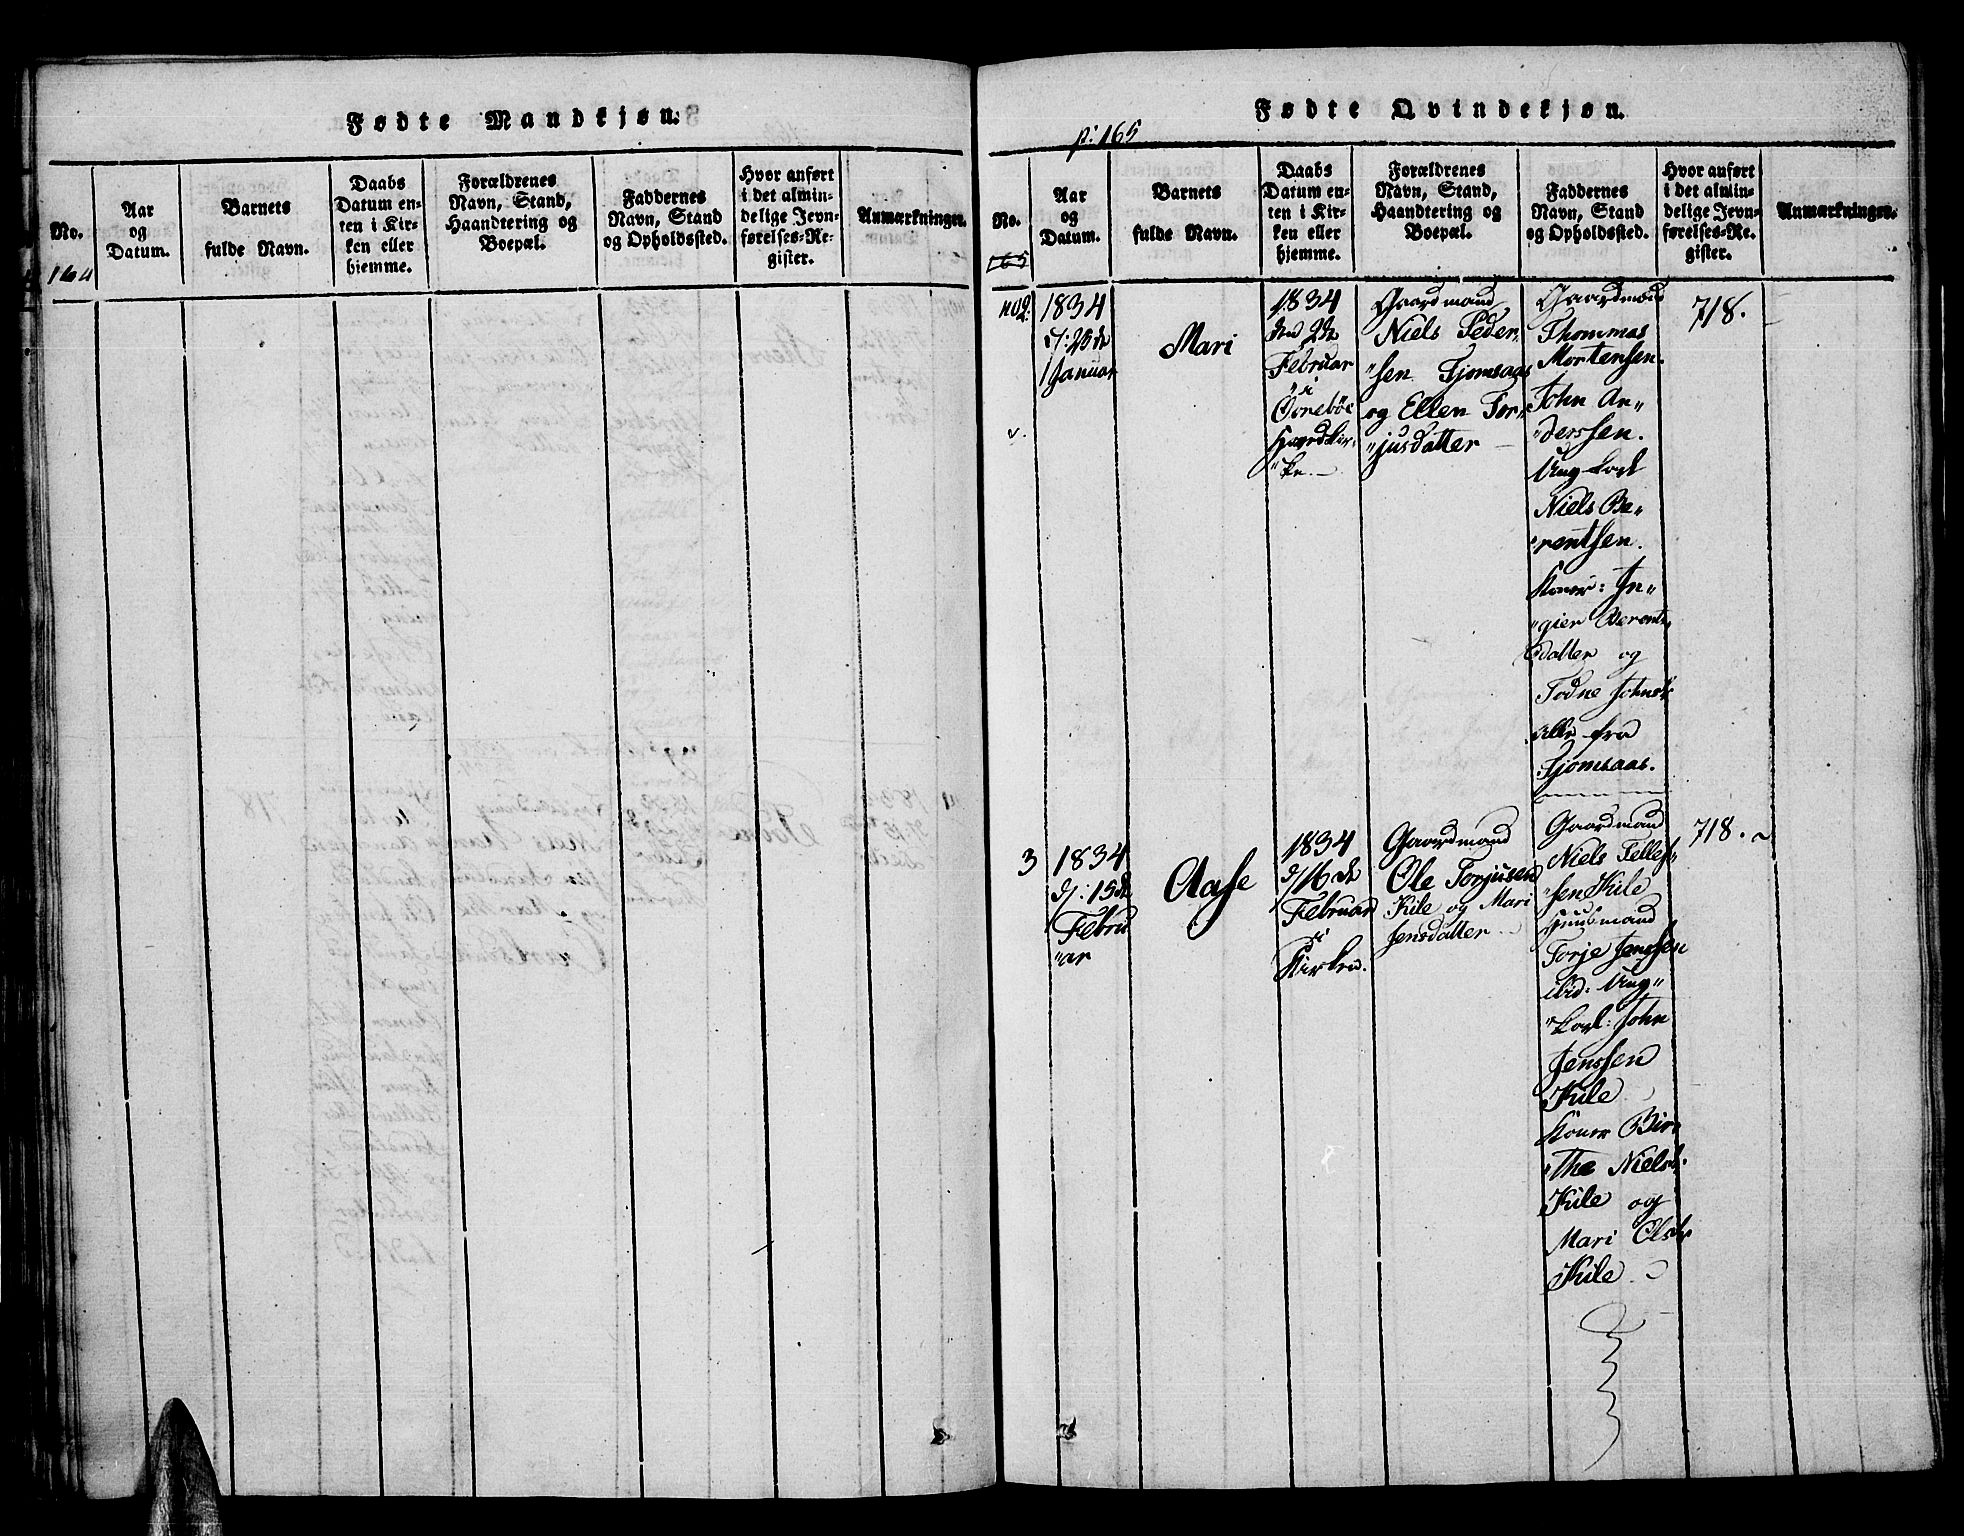 Fødte Mandkjøn.
No.
164
Aar
og
Datum.
Barnets
fulde Navn.
Daabs
Datum en-
ten i Kir-
ken eller
hjemme.
Forældrenes
Navn, Stand,
Haandtering og
Boepæl.
Faddernes
Navn, Stand
og Opholdssted.
Hvor anført
i det almin-
delige Jevn-
førelses-Re-
gister.
Anmærkninger.
Fødte Qvindekjøn.
p: 165
No.
165
Aar
og
Datum.
Barnets
fulde Navn.
Daabs
Datum en-
ten i Kir-
ken eller
hjemme.
Forældrenes
Navn, Stand,
Haandtering og
Boepæl.
Faddernes
Navn, Stand
og Opholdssted.
Hvor anført
i det almin-
delige Jevn-
førelses-Re-
gister.
Anmærkninger.
No 2.
1834
d: 25de
Januar
Mari
1834
den 2de
Februar
i
Øvrebøe
Hovedkir-
"ke.
Gaardmand
Niels Peder-
"sen Fjomsaas
og Ellen Tor-
"jusdatter
Gaardmand
Thommas
Mortensen.
John An-
"derssen.
Ung-karl
Niels Be-
"rentsen.
Koner: In-
"gier Berents
datter og
Todne Johnsdr
alle fra
Fjomsaas.
718.
3
1834
d: 15de
Febru
"ar
Aase
1834
d/16de
Februar
i
Kirken.
Gaardmand
Ole Torjusen
Kile og Mari
Jensdatter
Gaardmand
Niels Tellef-
"sen Kile
Huusmand
Torje Jenssen
ibid: Ung-
"karl: John
Jenssen
Kile
Koner Bir-
"the Nielsdr.
Kile og
Mari Olsdr
Kile
718.